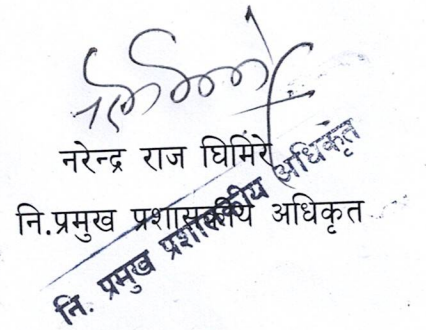 नरेन्द्र राज घिमिरे
नि.प्रमुख प्रशासकीय अधिकृत
नि. प्रमुख प्रशासकीय अधिकृत